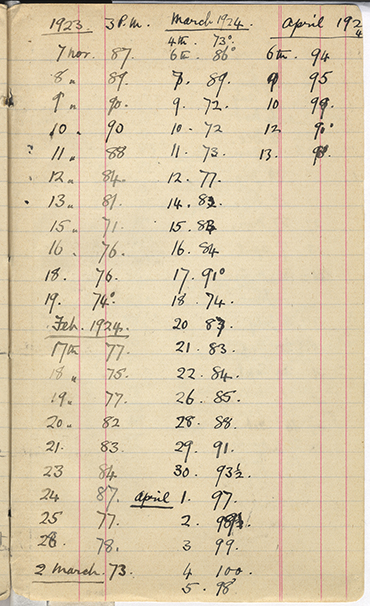 1923. 3 P.m.
7 Nov. 87.
8 " 89.
9 " 90.
10 " 90
11 " 88
12 " 84.
13 " 81.
15 " 71.
16 " 76.
18. 76.
19. 74°
Feb. 1924.
17th 77.
18 " 75.
19 " 77.
20 " 82
21. 83.
23 84
24 87.
25 77.
28. 78.
2 March. 73.
March 1924.
4th. 73°
6th. 86°
7. 89.
9. 72.
10. 72
11. 73.
12. 77.
14. 83.
15. 83.
16. 84
17. 91°
18. 74.
20 83.
21. 83.
22. 84.
26. 85.
28. 88.
29. 91.
30. 93½.
April 1. 97.
2.
3 99.
4 100.
5. 98
April 1924
6th. 94
9 95
10 99.
12 90°
13. 98.